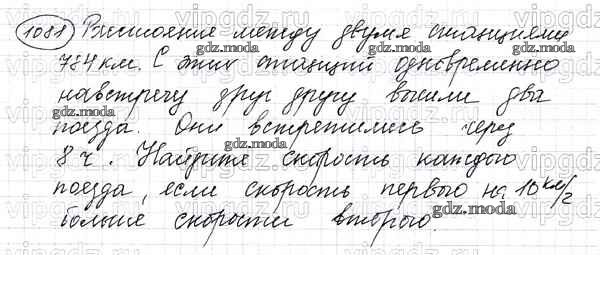 1088 Расстояние между двумя станциями
784 км. С этих станций одновременно
навстречу друг другу вышли два
поезда. Они встретились через
8 ч. Найдите скорость каждого
поезда, если скорость первого на 10 км/ч
больше скорости второго.
gdz.moda
gdz.moda
gdz.moda
gdz.moda
gdz.moda
gdz.moda
gdz.moda
gdz.moda